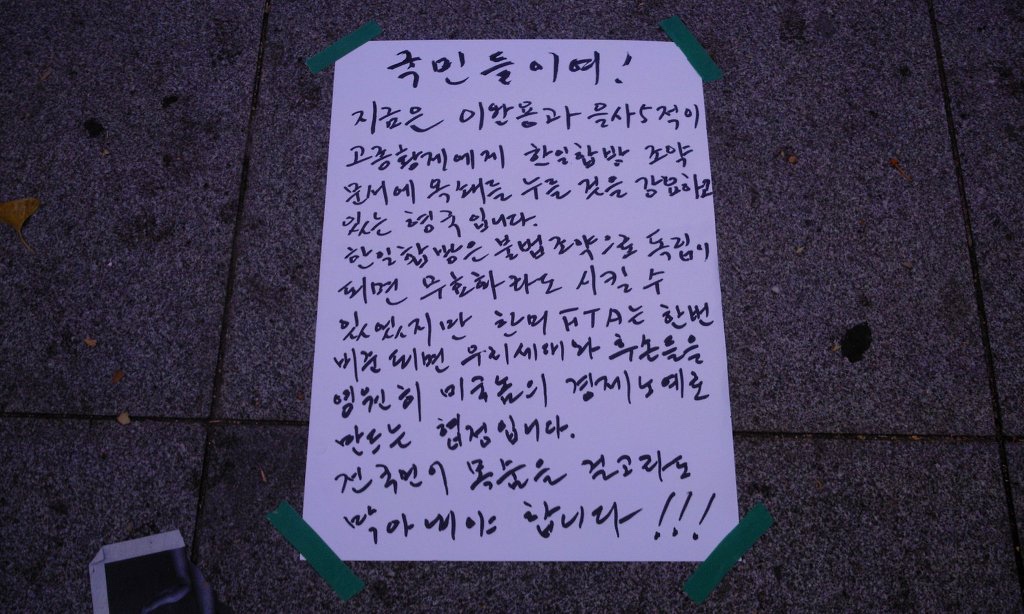 국민들이여!
지금은 이완용과 을사5적이
고종황제에게 한일합방 조약
문서에 옥쇄를 누를 것을 강요하고
있는 형국입니다.
한일합방은 불법조약으로 독립이
되면 무효화라도 시킬 수
있었지만 한미 FTA는 한번
비준되면 우리세대와 후손들을
영원히 미국놈의 경제노예로
만드는 협정입니다.
전국민이 목숨을 걸고라도
막아내야 합니다!!!